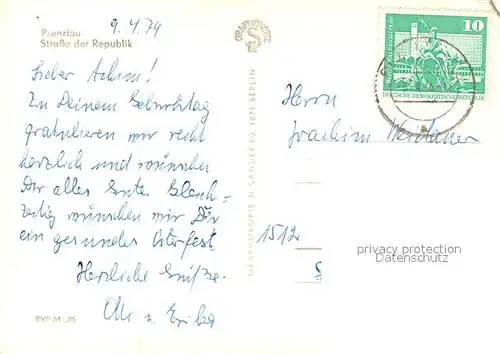 9.4.79
Prenzlau
Straße der Republik
Lieber Achim!
Zu Deinem Geburtstag
gratulieren wir recht
herzlich und wünschen
Dir alles Gute. Gleich-
zeitig wünschen wir Dir
ein gesundes Osterfest.
Herzliche Grüße
u. Erika
EVP M
GRAPHOKOPIE
GRAPHOKOPIE H. SANDER KG, 1071 BERLIN
10
DEUTSCHE DEMOKRATISCHE REPUBLIK
Herrn
Joachim
1512
privacy protection
Datenschutz